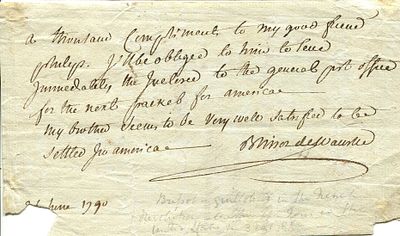 a thousand Compliments to my good friend
philips. I'll be obliged to him to send
immediately the Inclosed to the general post office
for the next packet for america
my brother seems to be very well satisfied to be
settled in america
Brissot de Warville
June 1790
in the